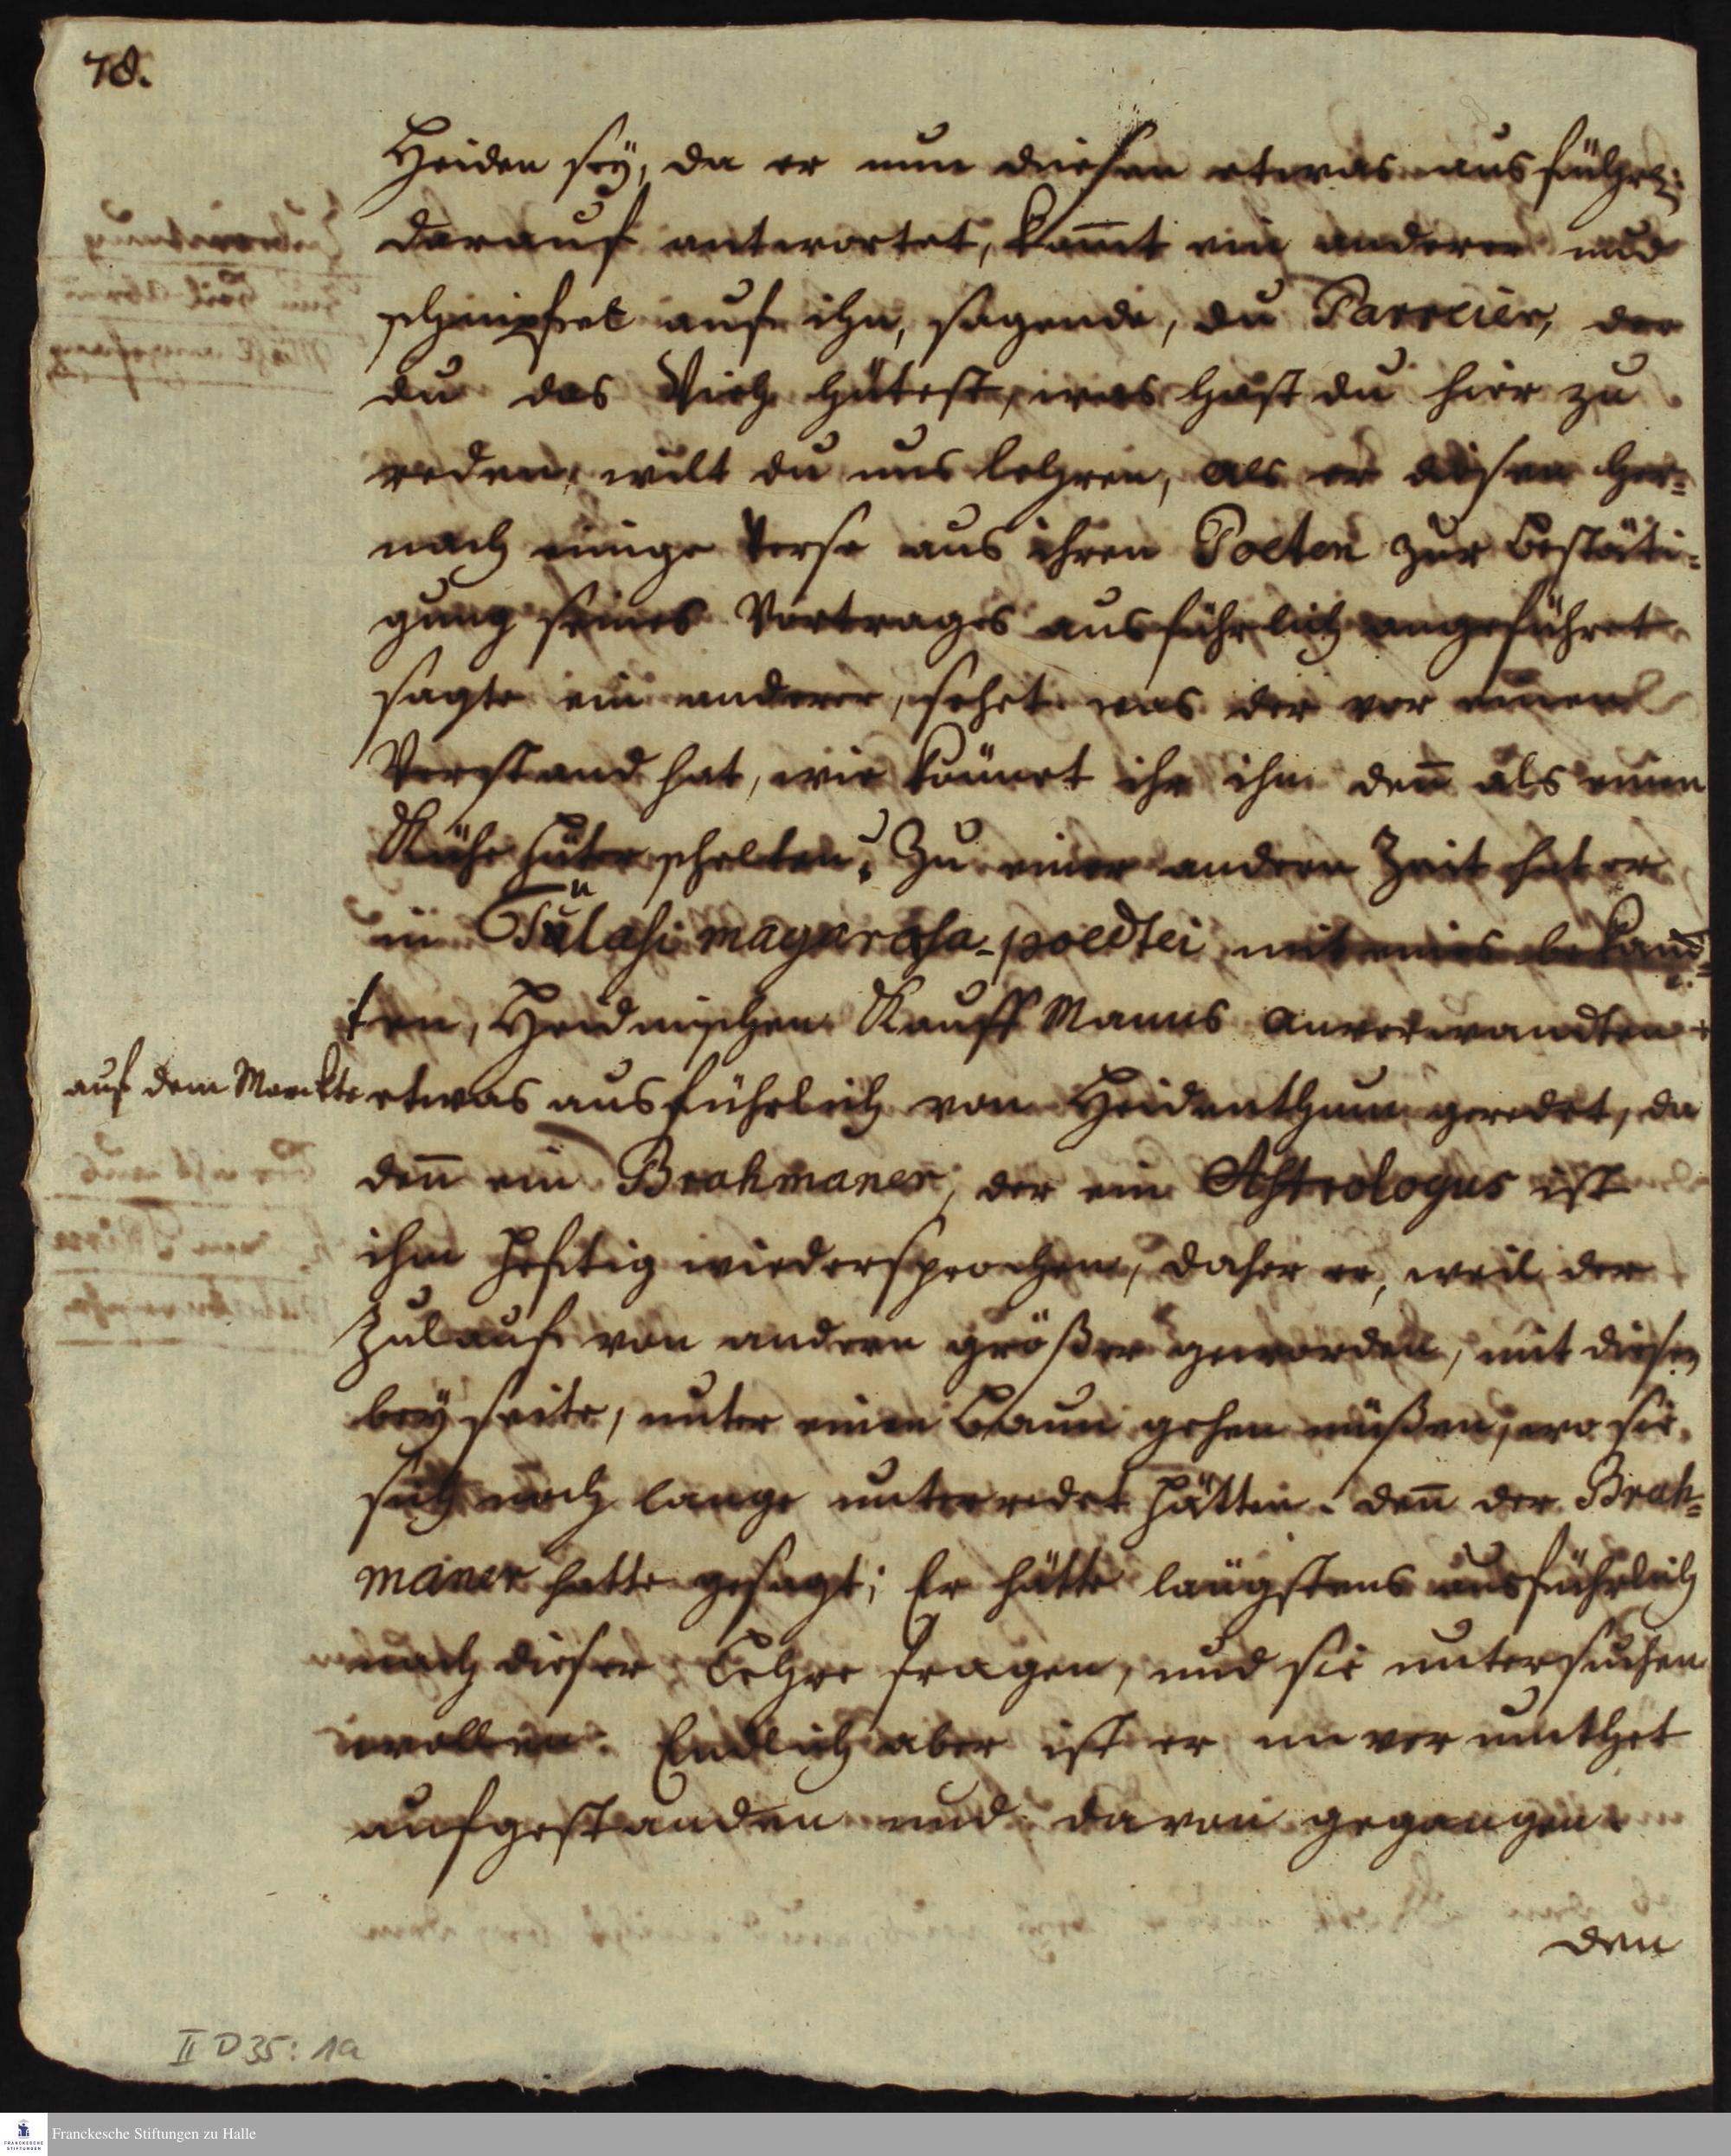 78.
Heiden seÿ, da er nun diesen etwas ausführl:
darauf antwortet, kom̄t ein anderer und
schimpfet auf ihn, sagende, du Parreier, der
du das Vieh hütest, was hast du hier zu
reden, wilt du uns lehren, als er diesen her=
nach einige Verse aus ihren Poeten zur Bestäti=
gung seines Vortrages ausführlich angeführet
sagte ein anderer, sehet was der vor einen
Verstand hat, wie könnet ihr ihn den̄ als einen
Kühe hüter schelten? Zu einer andern Zeit hat er
in Tulasi magarasa-poedtei mit eines bekan̄=
ten, Heidnischen Kauff Manns Anverwandten
auf dem Marckte etwas ausführlich von Heidenthum geredet, da
den̄ ein Brahmaner, der ein Astrologus ist
ihm heftig wiedersprochen, daher er, weil der
Zulauf von andern größer geworden, mit diesen
beÿ seite, unter einen Baum gehen müßen, wo sie
sich noch lange unterredet hätten. den̄ der Brah=
maner hatte gesagt; Er hätte längstens ausführlich
nach dieser Lehre fragen, und sie untersuchen
wollen. Endlich aber ist er unvermuthet
aufgestanden und davon gegangen.
den
II D 35: 1a
Franckesche Stiftungen zu Halle